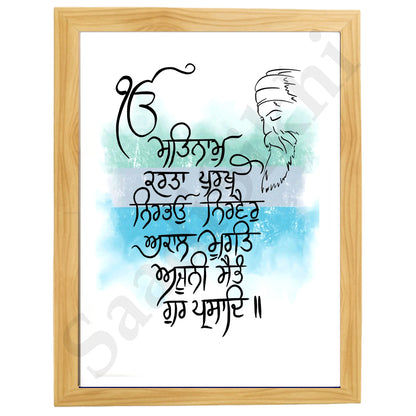 ੴ
ਸਤਿਨਾਮ
ਕਰਤਾ ਪੁਰਖੁ
ਨਿਰਭਉ ਨਿਰਵੈਰ
ਅਕਾਲ ਮੂਰਤਿ
ਅਜੂਨੀ ਸੈਭੰ
ਗੁਰ ਪ੍ਰਸਾਦਿ ॥